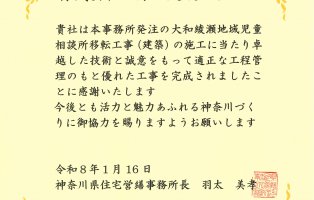 貴社は本事務所発注の大和綾瀬地域児童
相談所移転工事(建築)の施工に当たり卓
越した技術と誠意をもって適正な工程管
理のもと優れた工事を完成されましたこ
とに感謝いたします
今後とも活力と魅力あふれる神奈川づく
りに御協力を賜りますようお願いします
令和８年１月16日
神奈川県住宅営繕事務所長 羽太 美孝